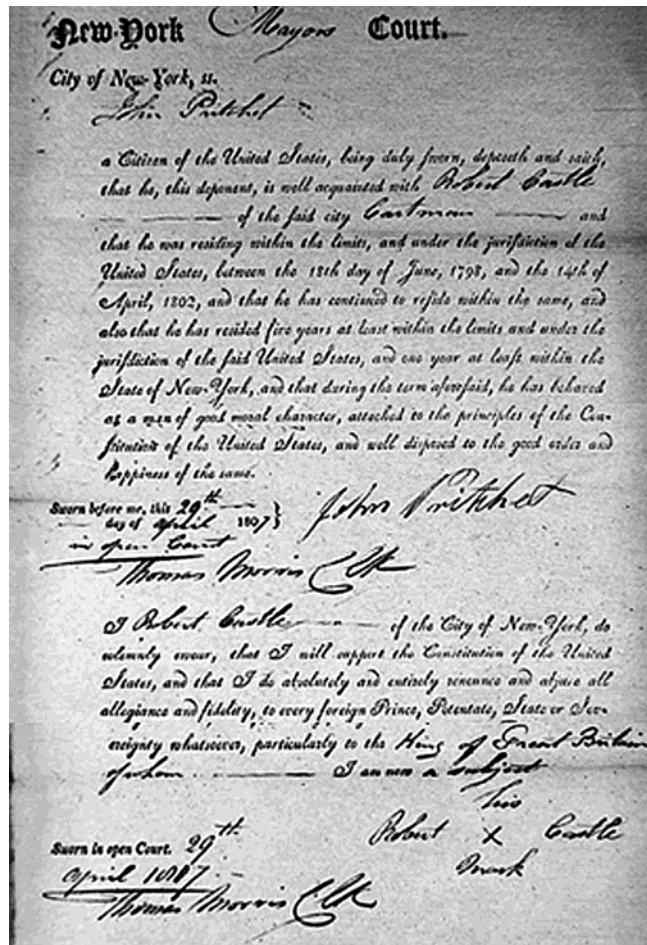 New-York Mayors Court.
City of New-York, ss.
John Pritchet
a Citizen of the United States, being duly sworn, deposeth and saith,
that he, this deponent, is well acquainted with Robert Castle
of the said city Cartman and
that he was residing within the limits, and under the jurisdiction of the
United States, between the 18th day of June, 1798, and the 14th of
April, 1802, and that he has continued to reside within the same, and
also that he has resided five years at least within the limits and under the
jurisdiction of the said United States, and one year at least within the
State of New-York, and that during the term aforesaid, he has behaved
as a man of good moral character, attached to the principles of the Con-
stitution of the United States, and well disposed to the good order and
happiness of the same.
Sworn before me, this 29th
day of april 1807
in open Court
John Pritchet
Thomas Morris Clk
I Robert Castle of the City of New-York, do
solemnly swear, that I will support the Constitution of the United
States, and that I do absolutely and entirely renounce and abjure all
allegiance and fidelity, to every foreign Prince, Potentate, State or Sov-
ereignty whatsoever, particularly to the King of Great Britain
of whom I am now a subject
his
Robert X Castle
mark
Sworn in open Court. 29th
april 1807
Thomas Morris Clk